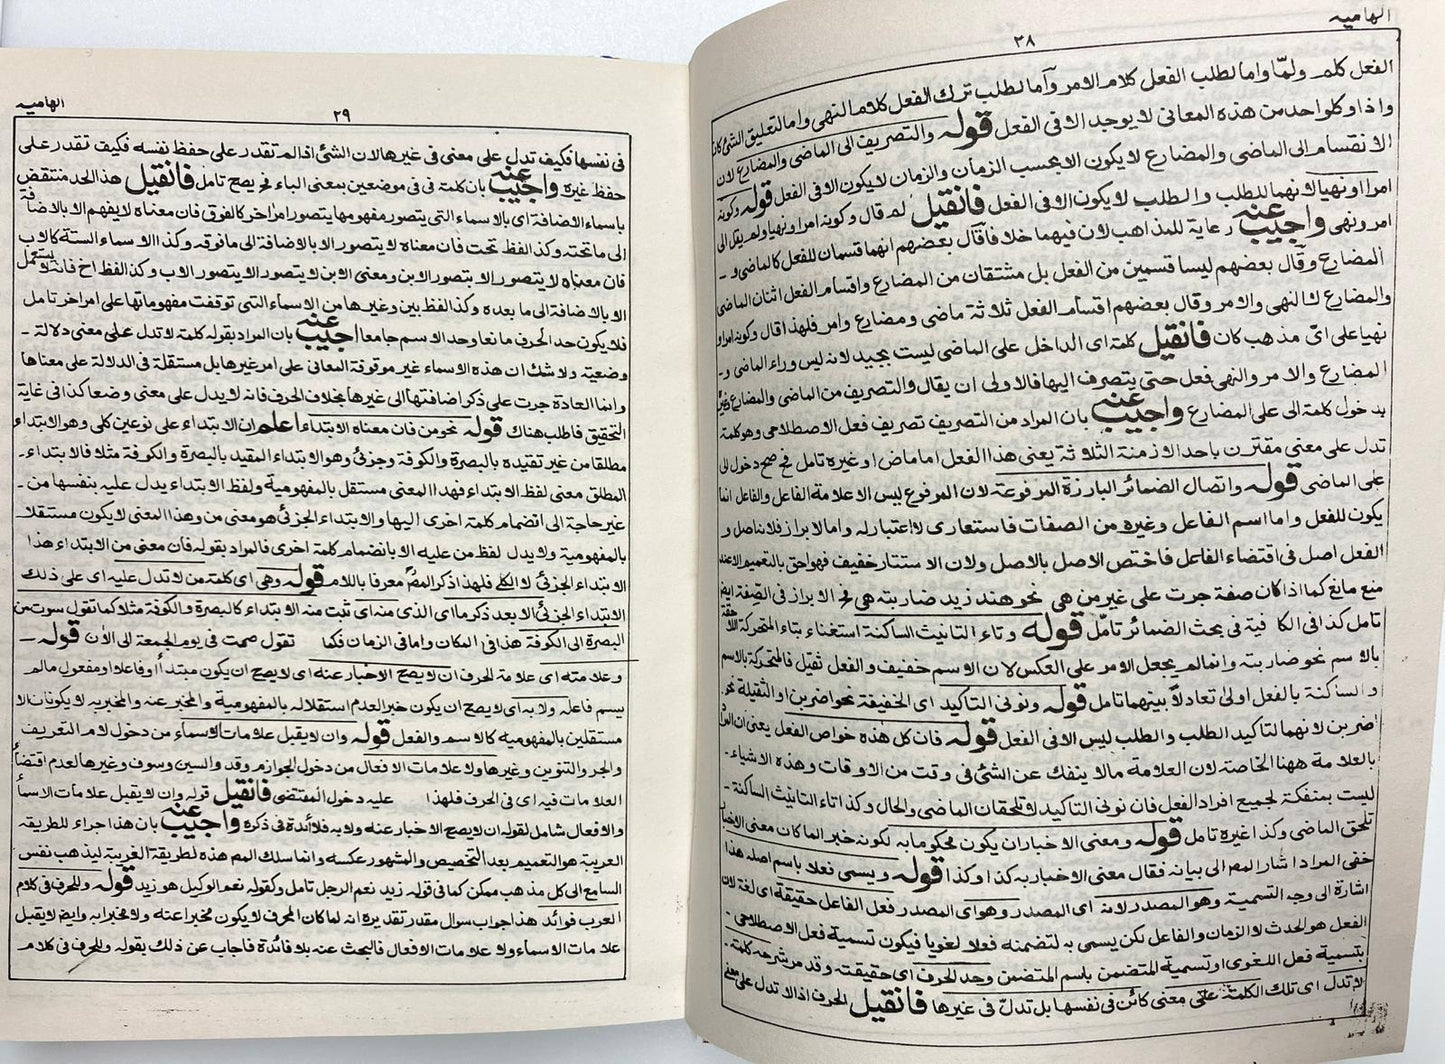 الهاميه
٢٨
الفعل كلم ولمّا واما لطلب الفعل كلام الامر وآما لطلب ترك الفعل كلاء النهى واما لتعليق الشئ كان
واذا وكلواحد من هذه المعانى لا يوجد الا فى الفعل قوله والتصريف الى الماضى والمضارع لان
الانقسام الى الماضى والمضارع لا يكون الا بحسب الزمان والزمان لا يكون الا فى الفعل قوله وكونه
امرا ونهيا لانهما للطلب والطلب لا يكون الا فى الفعل فانقيل لم قال وكونه امرا ونهيا ولم يقل الى
امر ونهى واجيب عنه رعاية للمذاهب لان فيهما خلافا قال بعضهم انهما قسمان للفعل كالماضى و
المضارع وقال بعضهم ليسا قسمين من الفعل بل مشتقان من المضارع واقسام الفعل اثنان الماضى
والمضارع لا النهى والامر وقال بعضهم اقسام الفعل ثلاثة ماضى ومضارع وامر فلهذا قال وكونه امرا و
نهيا على اىّ مذهب كان فانقيل كلمة اى الداخل على الماضى ليست بجيد لانه ليس وراء الماضى و
المضارع والامر والنهى فعل حتى يتصرف اليها فالاولى ان يقال والتصريف من الماضى والمضارع
بدخول كلمة الى على المضارع واجيب عنه بان المراد من التصريف تصريف فعل الاصطلاحى وهو كلمة
تدل على معنى مقترن باحد الازمنة الثلاثة يعنى هذا الفعل اما ماض او غيره تامل فح صح دخول الى
على الماضى قوله واتصال الضمائر البارزة المرفوعة لان المرفوع ليس الا علامة الفاعل والفاعل انما
يكون للفعل واما اسم الفاعل وغيره من الصفات فاستعارى لا اعتبار له واما الابراز فلانه اصل و
الفعل اصل فى اقتضاء الفاعل فاختص الاصل بالاصل ولان الاستتار خفيف فهو احق بالتعميم الا عند
منع مانع كما اذا كان صفة جرت على غير من هى نحو هند زيد ضاربته هى فح الابراز فى الصفة ايض
تامل كذا فى الكافية فى بحث الضمائر تامّل قوله وتاء التانيث الساكنة استغناء بتاء المتحركة اللاحقة
بالاسم نحو ضاربته وانما لم يجعل الامر على العكس لان الاسم خفيف والفعل ثقيل فالمتحركة بالاسم
والساكنة بالفعل اولى تعادلا بينهما تامل قوله ونونى التاكيد اى الخفيفة نحو اضربن او الثقيلة نحو
اضربن لانهما لتاكيد الطلب والطلب ليس الا فى الفعل قوله فان كل هذه خواص الفعل يعنى ان المراد
بالعلامة ههنا الخاصة لان العلامة ما لا ينفك عن الشئ فى وقت من الاوقات وهذه الاشياء
ليست بمنفكة لجميع افراد الفعل فان نونى التاكيد لا تلحقان الماضى والحال وكذا تاء التانيث الساكنة
تلحق الماضى وكذا غيره تامل قوله ومعنى الاخبار ان يكون محكوما به لكونه خبرا لما كان معنى الاخبار
خفى المراد اشار المص الى بيانه فقال معنى الاخبار به كذا وكذا قوله ويسمى فعلا باسم اصله هذا
اشارة الى وجه التسمية وهو المصدر لانه اى المصدر وهو اى المصدر فعل الفاعل حقيقة اى لغة لان
الفعل هو الحدث لا الزمان والفاعل لكن يسمى به لتضمنه فعلا لغويا فيكون تسمية فعل الاصطلاحى
بتسمية فعل اللغوى او تسمية المتضمن باسم المتضمن وحد الحرف اى حقيقته وقد مر شرحه كلمة
لا تدل اى تلك الكلمة على معنى كائن فى نفسها بل تدلّ فى غيرها فانقيل الحرف اذا لا تدل على معنى
الهاميه
٢٩
فى نفسها فكيف تدل على معنى فى غيرها لان الشئ اذا لم تقدر على حفظ نفسه فكيف تقدر على
حفظ غيره واجيب عنه بان كلمة فى فى موضعين بمعنى الباء فح يصح تامل فانقيل هذا الحد منتقض
باسماء الاضافة اى بالاسماء التى يتصور مفهومها يتصور امر اخر كالفوق فان معناه لا يفهم الا بالاضافة
الى ما تحته وكذا لفظ تحت فان معناه لا يتصور الا بالاضافة الى ما فوقه وكذا الاسماء الستة كالاب
فان معناه لا يتصور الا بتصور الابن ومعنى الابن لا يتصور الا بتصور الاب وكذا لفظ اخ فانه لا يستعمل
الا بالاضافة الى ما بعده وكذا لفظ بين وغيرها من الاسماء التى توقفت مفهوماتها على امر اخر تامل
فلا يكون حد الحرف مانعا وحد الاسم جامعا اجيب عنه بان المراد بقوله كلمة لا تدل على معنى دلالة
وضعية ولا شك ان هذه الاسماء غير موقوفة المعانى على امر غيرها بل مستقلة فى الدلالة على معناها
وانما العادة جرت على ذكر اضافتها الى غيرها بخلاف الحرف فانه لا يدل على معنى وضعا كذا فى غاية
التحقيق فاطلب هناك قوله نحو من فان معناه الابتداء اعلم ان الابتداء على نوعين كلى وهو الابتداء
مطلقا من غير تقيده بالبصرة والكوفة وجزئى وهو الابتداء المقيد بالبصرة والكوفة مثلا فالابتداء
المطلق معنى لفظ الابتداء فهذا المعنى مستقل بالمفهومية ولفظ الابتداء يدل عليه بنفسها من
غير حاجة الى انضمام كلمة اخرى اليها والابتداء الجزئى هو معنى من وهذا المعنى لا يكون مستقلا
بالمفهومية ولا يدل لفظ من عليه الا بانضمام كلمة اخرى فالمراد بقوله فان معنى من الابتداء هذا
الابتداء الجزئى لا الكلى فلهذا ذكر المص معرفا باللام قوله وهى اى كلمة من لا تدل عليه اى على ذلك
الابتداء الجزئى الا بعد ذكر ما اى الذى منه اى ثبت منه الابتداء كالبصرة والكوفة مثلا كما تقول سرت من
البصرة الى الكوفة هذا فى المكان واما فى الزمان فكما تقول صمت فى يوم الجمعة الى الان قوله
وعلامته اى علامة الحرف ان لا يصح الاخبار عنه اى لا يصح ان يكون مبتدأ او فاعلا او مفعول ما لم
يسم فاعله ولا به اى لا يصح ان يكون خبرا لعدم استقلاله بالمفهومية والمخبر عنه والمخبر به لا يكونان الا
مستقلين بالمفهومية كالاسم والفعل قوله وان لا يقبل علامات الاسماء من دخول لام التعريف
والجر والتنوين وغيرها ولا علامات الافعال من دخول الجوازم وقد والسين وسوف وغيرها لعدم اقتضاء
العلامات فيه اى فى الحرف فلهذا عليه دخول المقتضى فانقيل قوله وان لا يقبل علامات الاسماء
والافعال شامل لقوله ان لا يصح الاخبار عنه ولا به فلا فائدة فى ذكره واجيب عنه بان هذا اجراء للطريقه
العربية هو التعميم بعد التخصيص والمشهور عكسه وانما سلك المص هذه لطريقة الغريبة ليذهب نفس
السامع الى كل مذهب ممكن كما فى قوله زيد نعم الرجل تامل وكقوله نعم الوكيل هو زيد قوله وللحرف فى كلام
العرب فوائد هذا جواب سوال مقدر تقديره انه لما كان الحرف لا يكون مخبرا عنه ولا مخبرا به وايض لا يقبل
علامات الاسماء ولا علامات الافعال فالبحث عنه بلا فائدة فاجاب عن ذلك بقوله وللحرف فى كلام